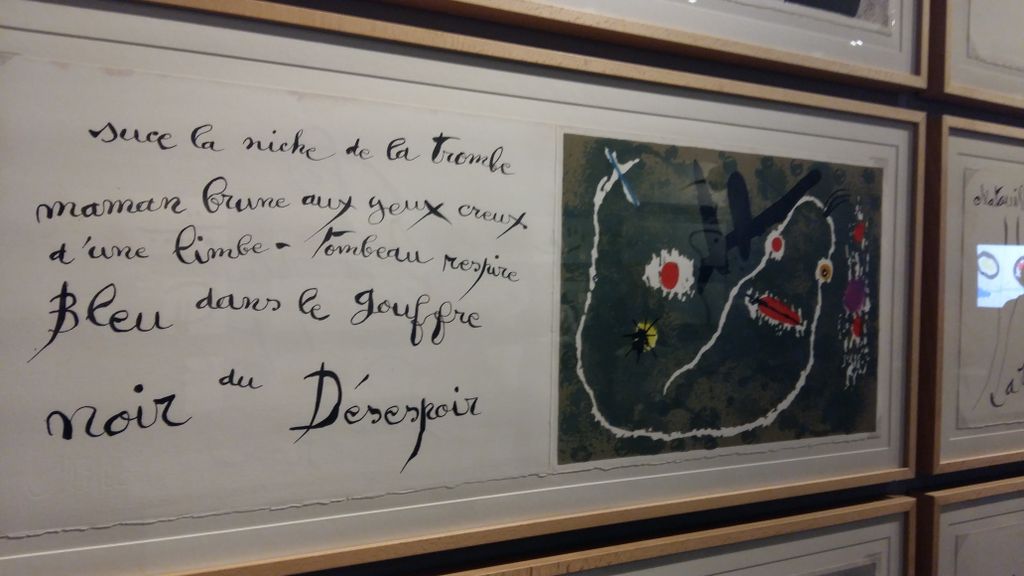 suce la niche de la trombe
maman brune aux yeux creux
d'une limbe - Tombeau respire
Bleu dans le gouffre
noir du Désespoir